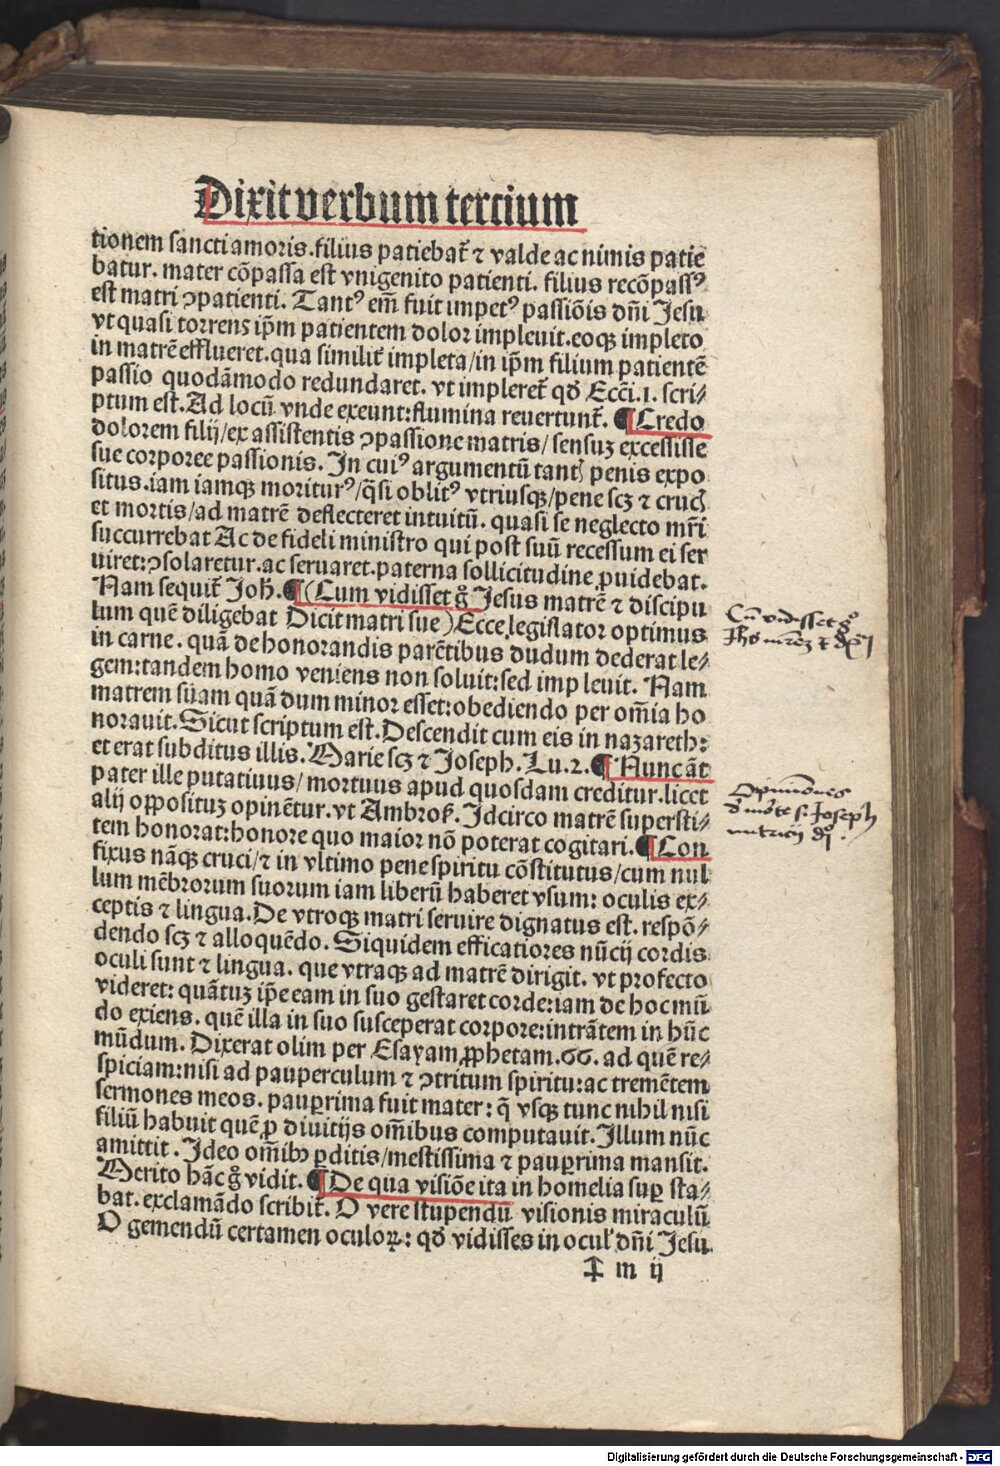 Dixit verbum tercium
tionem sancti amoris. filius patiebat᷑ ⁊ valde ac nimis patie
batur. mater cōpassa est vnigenito patienti. filius recōpassꝰ
est matri ꝯpatienti. Tantꝰ em̄ fuit impetꝰ passiōis dn̄i Jesu
vt quasi torrens ip̄m patientem dolor impleuit. eoqꝫ impleto
in matrē efflueret. qua similit᷑ impleta/in ip̄m filium patientē
passio quodāmodo redundaret. vt impleret᷑ qd̄ Ecc̄i.1. scri⸗
ptum est. Ad locū vnde exeunt: flumina reuertunt᷑. ¶ Credo
dolorem filij/ex assistentis ꝯpassione matris/sensuꝫ excessisse
sue corporee passionis. In cuiꝰ argumentū tantꝭ penis expo
situs. iam iamqꝫ moriturꝰ/q̄si oblitꝰ vtriusqꝫ/pene scꝫ ⁊ crucꝭ
et mortis/ad matrē deflecteret intuitū. quasi se neglecto mr̄i
succurrebat Ac de fideli ministro qui post suū recessum ei ser
uiret: ꝯsolaretur. ac seruaret. paterna sollicitudine ꝓuidebat.
Nam sequit᷑ Joh̄. ¶ (Cum vidisset g̊ Jesus matrē ⁊ discipu
lum quē diligebat Dicit matri sue) Ecce legislator optimus
in carne. quā de honorandis parētibus dudum dederat le⸗
gem: tandem homo veniens non soluit: sed impleuit. Nam
matrem suam quā dum minor esset: obediendo per om̄ia ho
norauit. Sicut scriptum est. Descendit cum eis in nazareth:
et erat subditus illis. Marie scꝫ ⁊ Joseph. Lu.2. ¶ Nunc āt
pater ille putatiuus/mortuus apud quosdam creditur. licet
alij opposituꝫ opinētur. vt Ambros᷑. Idcirco matrē supersti⸗
tem honorat: honore quo maior nō poterat cogitari. ¶ Con
fixus nāqꝫ cruci/⁊ in vltimo pene spiritu cōstitutus/cum nul
lum mēbrorum suorum iam liberū haberet vsum: oculis ex⸗
ceptis ⁊ lingua. De vtroqꝫ matri seruire dignatus est. respō⸗
dendo scꝫ ⁊ alloquēdo. Siquidem efficatiores nūcij cordis
oculi sunt ⁊ lingua. que vtraqꝫ ad matrē dirigit. vt profecto
videret: quātuꝫ ip̄e eam in suo gestaret corde: iam de hoc mū
do exiens. quē illa in suo susceperat corpore: intrātem in hūc
mūdum. Dixerat olim per Esayam ꝓphetam. 66. ad quē re⸗
spiciam: nisi ad pauperculum ⁊ ꝯtritum spiritu: ac tremētem
sermones meos. pauꝑrima fuit mater: q̄ vsqꝫ tunc nihil nisi
filiū habuit quē ꝓ diuitijs om̄ibus computauit. Illum nūc
amittit. Ideo om̄ibꝰ ꝑditis/mestissima ⁊ pauꝑrima mansit.
Merito hāc g̊ vidit. ¶ De qua visiōe ita in homelia suꝑ sta⸗
bat. exclamādo scribit᷑. O vere stupendū visionis miraculū
O gemendū certamen oculoꝝ: qd̄ vidisses in ocul᷑ dn̄i Jesu
‡ m ij
Cū vidisset g̊
Opiniones
Joseph
Digitalisierung gefördert durch die Deutsche Forschungsgemeinschaft - DFG